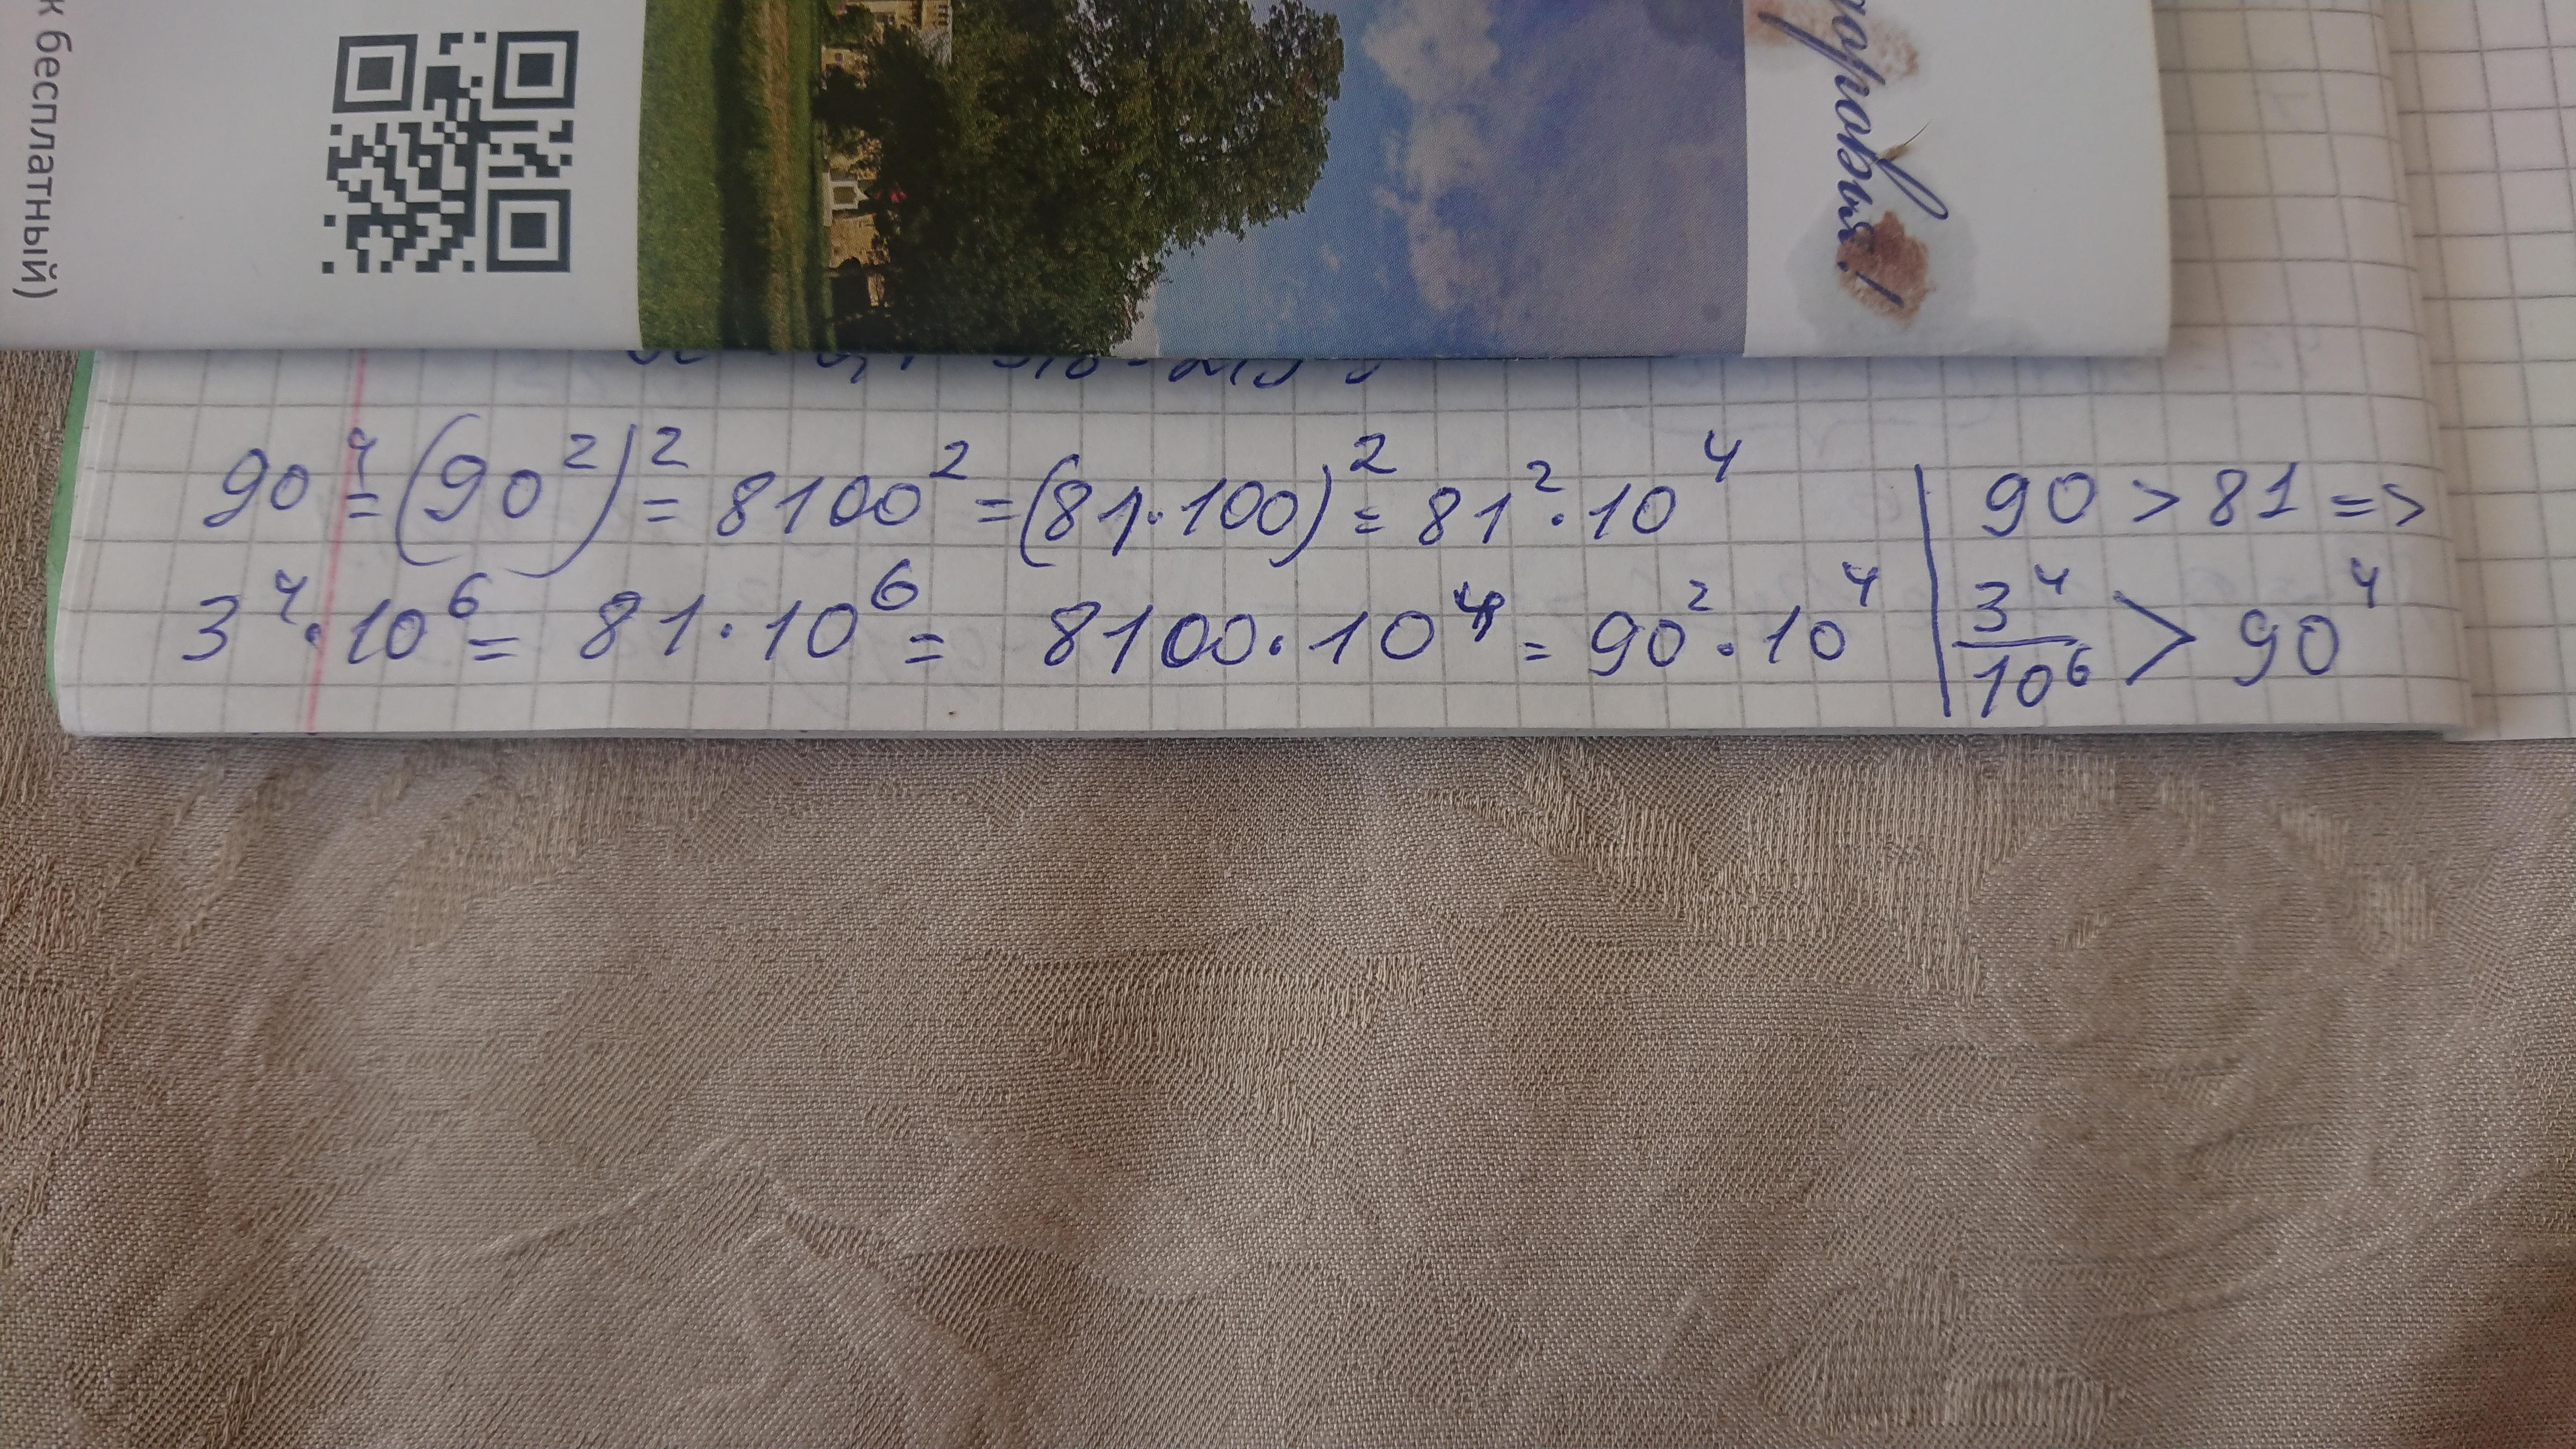 к бесплатный)
90⁴ = (90²)² = 8100² = (81·100)² = 81² · 10⁴ | 90 > 81 =>
3⁴ · 10⁶ = 81 · 10⁶ = 8100 · 10⁴ = 90² · 10⁴ | 3⁴/10⁶ > 90⁴